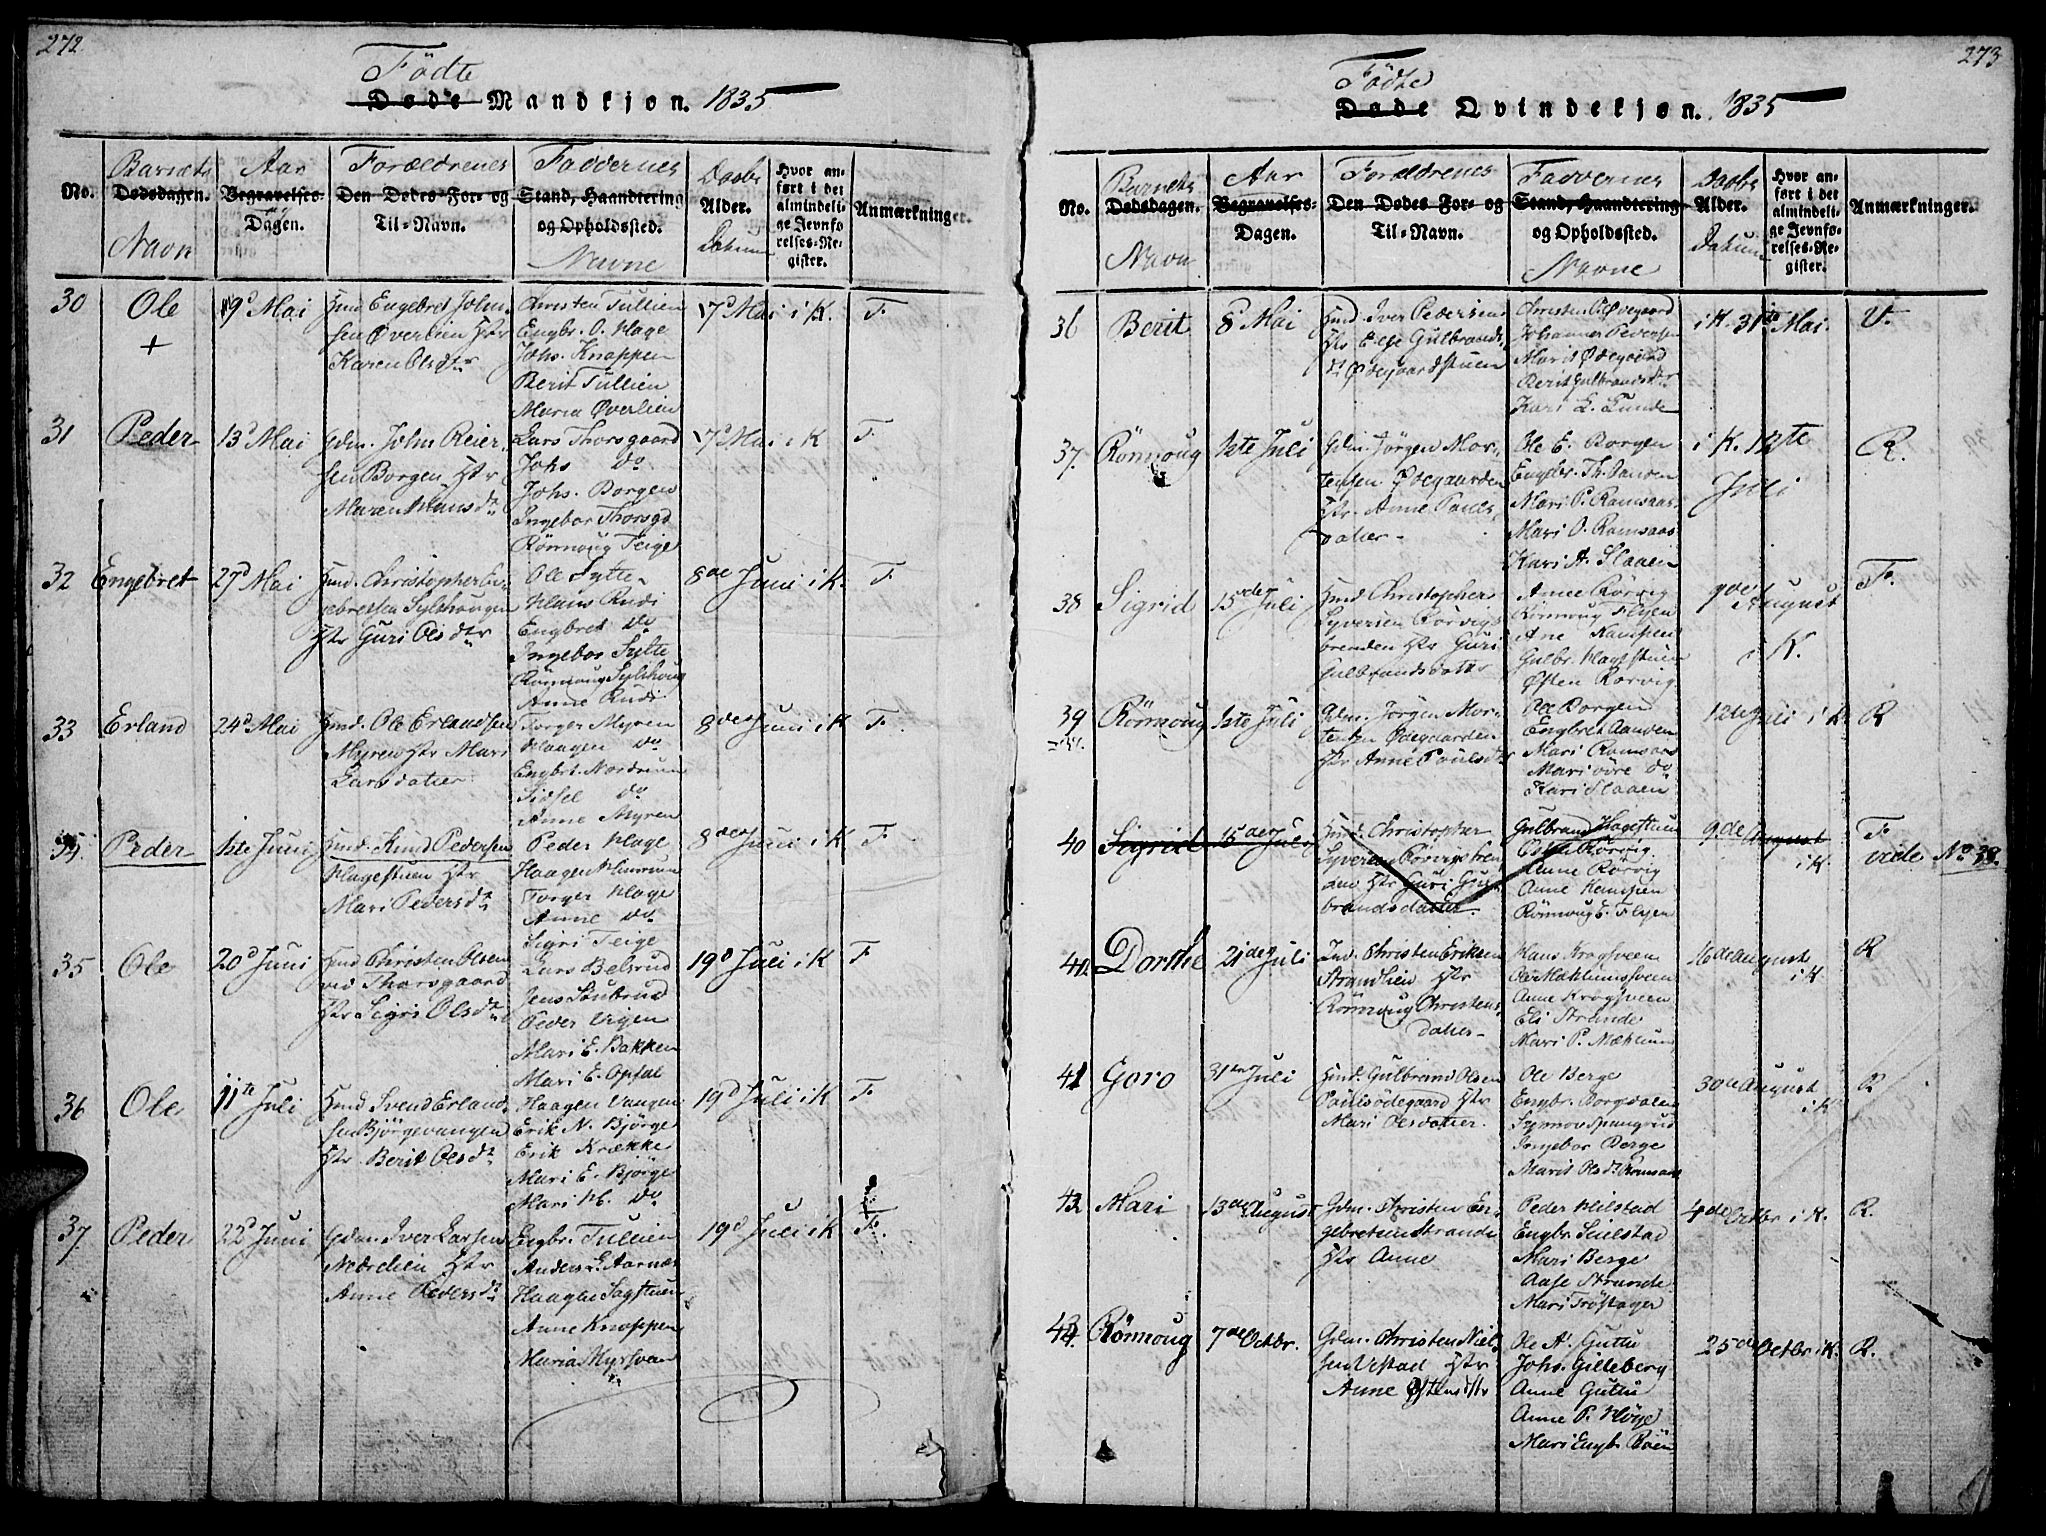 272
Födte
Døde Mandkjøn. 1835
No. Barnets Dødsdagen. Navn
Aar Begravelses-Dagen.
Forældrenes Den Dødes For- og Til-Navn.
Faddernes Stand, Haandtering og Opholdssted. Navne
Daabs Alder. Datum
Hvor anført i det almindelige Jevnførelses-Register.
Anmærkninger.
30 Ole + 9d Mai
Hmd Engebret John-
sen Øverlien Hstr
Karen Olsdtr
Christen Tullien
Engbr. O. Hage
Johs. Knappen
Berit Tullien
Maria Øverlien
17d Mai i K. F.
31 Peder 13d Mai
Gdm. John Reier-
sen Borgen Hstr
Maren Hansdtr
Lars Thorsgaard
Johs do
Johs. Borgen
Ingebor Thorsgd
Rönnoug Teige
17d Mai i K F.
32 Engebret 27d Mai
Hmd. Christopher En-
gebretsen Sylshougen
Hstr Guri Olsdtr
Ole Sytte
Hans Rudi
Engbret do
Ingebor Sytte
Rönnoug Sylshoug
Anne Rudi
8de Juni i K. F.
33 Erland 24d Mai
Hmd. Ole Erlandsen
Myren Hstr Mari
Larsdatter
Torger Myren
Haagen do
Engbrt Nordrum
Sidsel do
Anne Myren
8de Juni i K F.
34 Peder 1ste Juni
Hmd. Knud Pedersen
Hagestuen Hstr
Mari Pedersdtr
Peder Hage
Haagen
Torger Hage
Anne do
Sigri Teige
8de Juni i K F.
35 Ole 20d Juni
Hmd Christen Olsen
ved Thorsgaard
Hstr Sigri Olsdtr
Lars Belsrud
Jens
Peder Vigen
Mari E. Bakken
Mari E. Opsal
19d Juli i K F
36 Ole 11te Juli
Hmd Svend Erland-
sen Björgevangen
Hstr Berit Olsdtr
Haagen Vangen
Erik N. Björge
Erik Krække
Mari E. Björge
Mari H. do
19d Juli i K F.
37 Peder 22d Juni
Gdm. Iver Larsen
Nærelien Hstr
Anne Pedersdtr
Engbr. Tullien
Anders G. Aarnæs
Haagen Sagstuen
Anne Knappen
Maria Myrsveen
19d Juli i K F.
273
Födte
Døde Qvindekjøn. 1835
No. Barnets Dødsdagen. Navn
Aar Begravelses-Dagen.
Forældrenes Den Dødes For- og Til-Navn.
Faddernes Stand, Haandtering og Opholdssted. Navne
Daabs Alder. Datum
Hvor anført i det almindelige Jevnførelses-Register.
Anmærkninger.
36 Berit 8 Mai
Hmd. Iver Pedersen
Hstr Elge Gulbrands-
dtr Ødegaardstuen
Christen P. Øvegaard
Johannes Pedersen
Marit Ødegaard
Berit Gulbrandsdtr
Kari L. Lunde
i K. 31te Mai. V.
37. Rönnoug 1ste Juli
Gdm. Jørgen Mor-
tensen Ødegaarden
Hstr. Anne Pouls-
datter
Ole E. Borgen
Engbr. Th. Aanven
Mari P. Ramsaas
Mari O. Ramsaas
Kari A. Slaaen
i K. 12te Juli R.
38 Sigrid 15de Juli
Hmd. Christopher
Syversen Rörvigs-
brenden Hstr Guri
Gulbrandsdatter
Anne Rörvig
Rönnoug Flyen
Ane Kampen
Gulbr. Hagestuen
Østen Rörvig
9de August i K. F.
39 37. Rönnoug 1ste Juli
Gdm. Jørgen Mor-
tensen Ødegaarden
Hstr Anne Poulsdtr
Ole Borgen
Engbret Aanven
Mari Ramsaas
Mari øvre do
Kari Slaaen
12te Juli i K R
40 Sigrid 15de Juli
Hmd. Christopher
Syversen Rörvigsbren-
den Hstr Guri Gul-
brandsdatter.
Gulbrand Hagestuen
Østen Rörvig.
Anne Rörvig
Anne Kampen
Rönnoug E. Flyen
9de August i K. F. vide No 38.
40. Dorthe 21de Juli
Ind. Christen Eriksen
Strandlien Hstr
Rönnoug Christens-
datter
Hans Krogsveen
Anne Krogsveen
Eli Strande
Mari P. Mæhlum
16de August i K. R
41 Goro 31te Juli
Hmd. Gulbrand Olsen
Poulsödegaard Hstr
Mari Olsdatter.
Ole Berge
Engbr. Borgedalen
Synnov Spangrud
Ingebor Berge
Marit Olsdtr Ramsaas
30te August i K R
42 Mari 13de August
Gdm. Christen En-
gebretsen Strande
Hstr Anne
Peder Hielstad
Engbr. Seielstad
Mari Berge
Aase Strande
Mari Tröstager
4de Octbr i K. R.
43 Rönnoug 7de Octbr.
Gdm. Christen Niel-
sen Ulstad Hstr
Anne Østensdtr
Ole A. Guttu
Johs. Gilleberg
Anne Guttu
Anne P. Höge
Mari Engbr. Röen
25de Octbr i K. R.